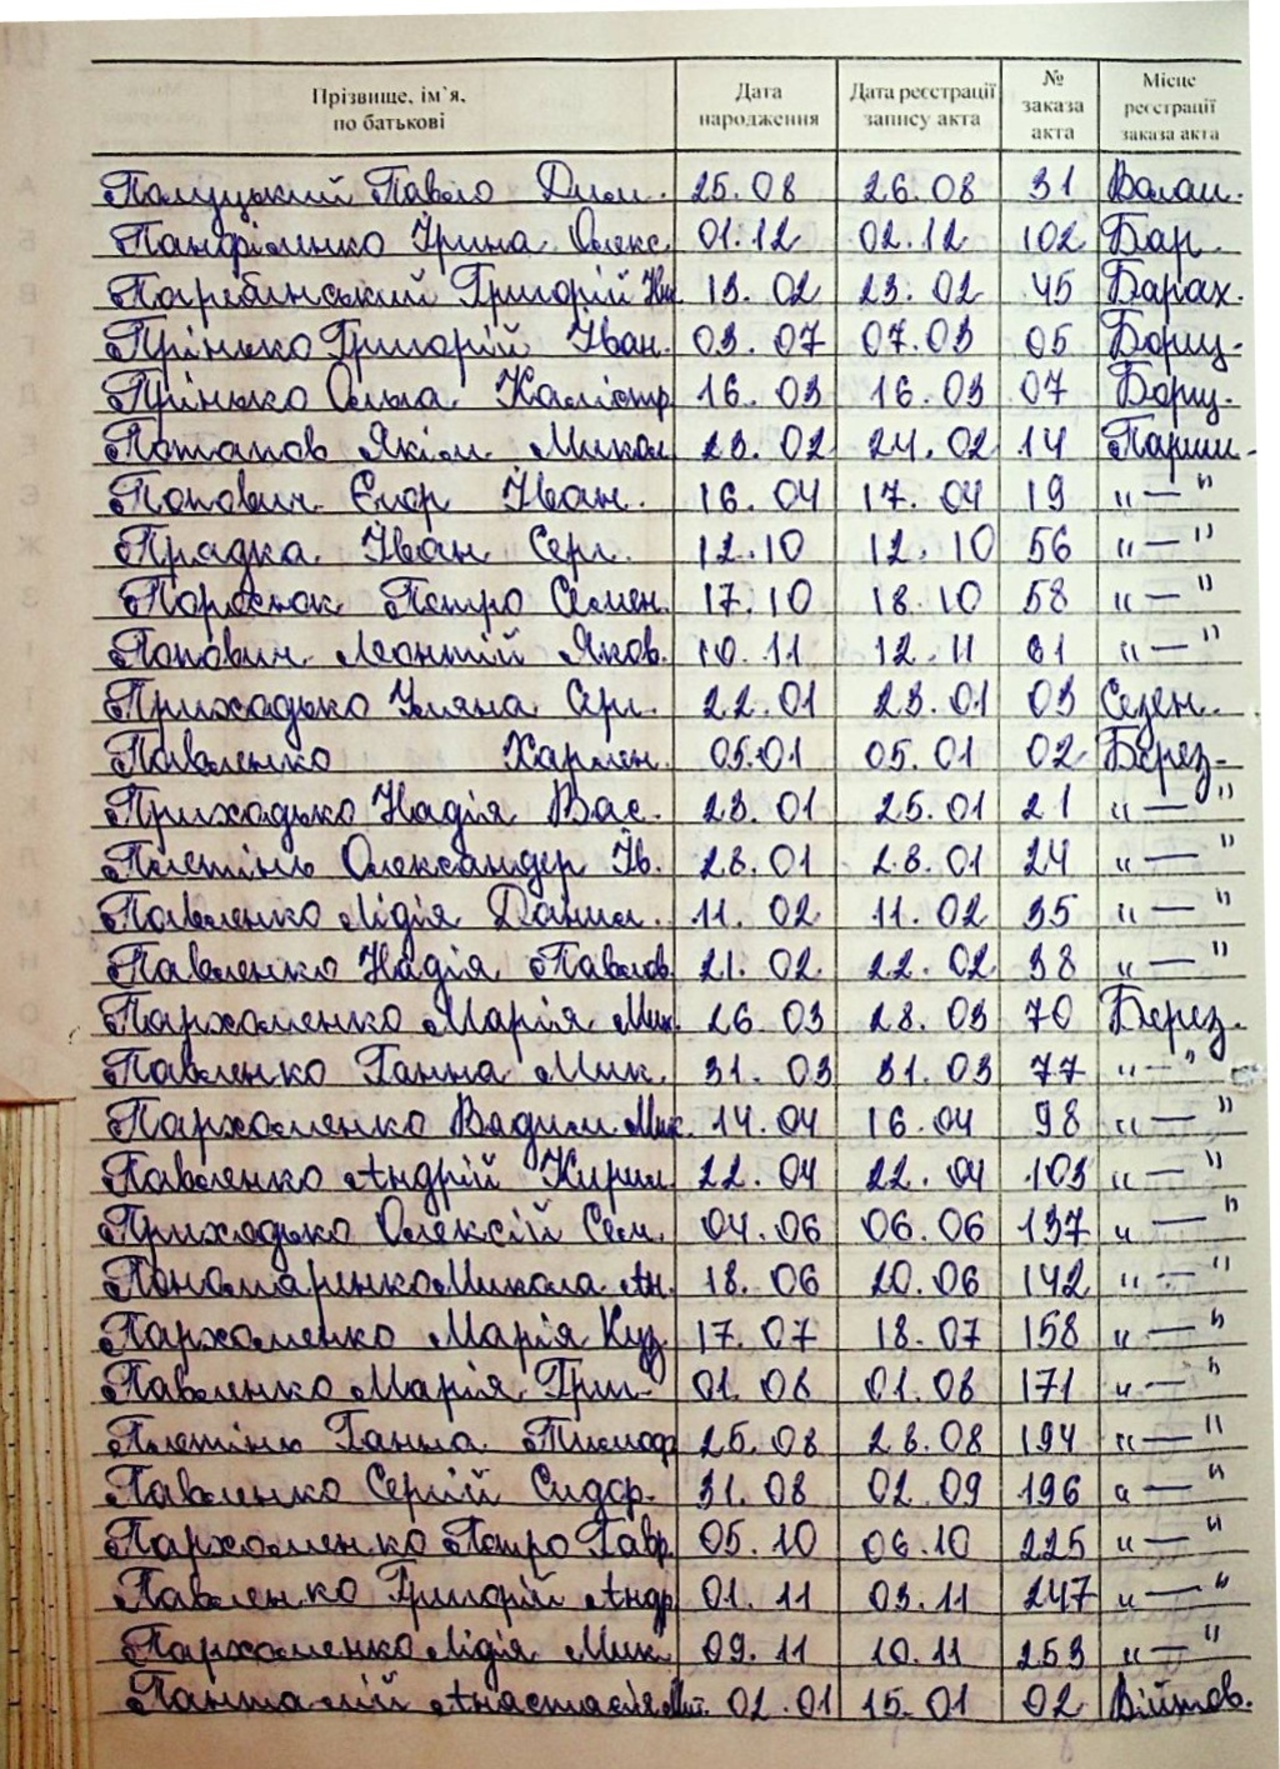 Прізвище, ім`я, по батькові Дата народження Дата реєстрації запису акта № заказа акта Місце реєстрації заказа акта
Павло Дми. 25.08 26.08 31 Волош.
Панфіленко Ірина Олекс 01.12 02.12 102 Бар.
Паребинський Григорій Ник 13.02 23.02 45 Барах.
Прінько Григорій Іван. 03.07 07.03 05 Борщ.
Прінько Ольга Калістр 16.03 16.03 07 Борщ.
Потапов Якім Микол 23.02 24.02 14 Парии.
Попович Єгор Іван. 16.04 17.04 19 "—"
Прядка Іван Серг. 12.10 12.10 56 "—"
Петро Семен. 17.10 18.10 58 "—"
Попович Леонтій Яков. 10.11 12.11 61 "—"
Приходько Уляна Серг. 22.01 23.01 03 Сезен.
Павленко Харлен. 05.01 05.01 02 Берез-
Приходько Надія Вас. 23.01 25.01 21 "—"
Плетінь Олександер Ів. 28.01 28.01 24 "—"
Павленко Лідія Данил. 11.02 11.02 35 "—"
Павленко Надія Павлов. 21.02 22.02 38 "—"
Пархоменко Марія Мик. 26.03 28.03 70 Берез.
Павленко Ганна Мик. 31.03 31.03 77 "—"
Пархоменко Вадим Мик. 14.04 16.04 98 "—"
Павленко Андрій Кирил. 22.04 22.04 103 "—"
Приходько Олексій Сем. 04.06 06.06 137 "—"
Пономаренко Микола Ан. 18.06 20.06 142 "—"
Пархоменко Марія Куз. 17.07 18.07 158 "—"
Павленко Марія Григ 01.08 01.08 171 "—"
Плетінь Ганна Тимоф 25.08 28.08 194 "—"
Павленко Сергій Сидор. 31.08 02.09 196 "—"
Пархоменко Петро Гавр. 05.10 06.10 225 "—"
Павленко Григорій Андр 01.11 03.11 247 "—"
Пархоменко Лідія Мик. 09.11 10.11 253 "—"
Анастасія 02.01 15.01 02 Війтов.